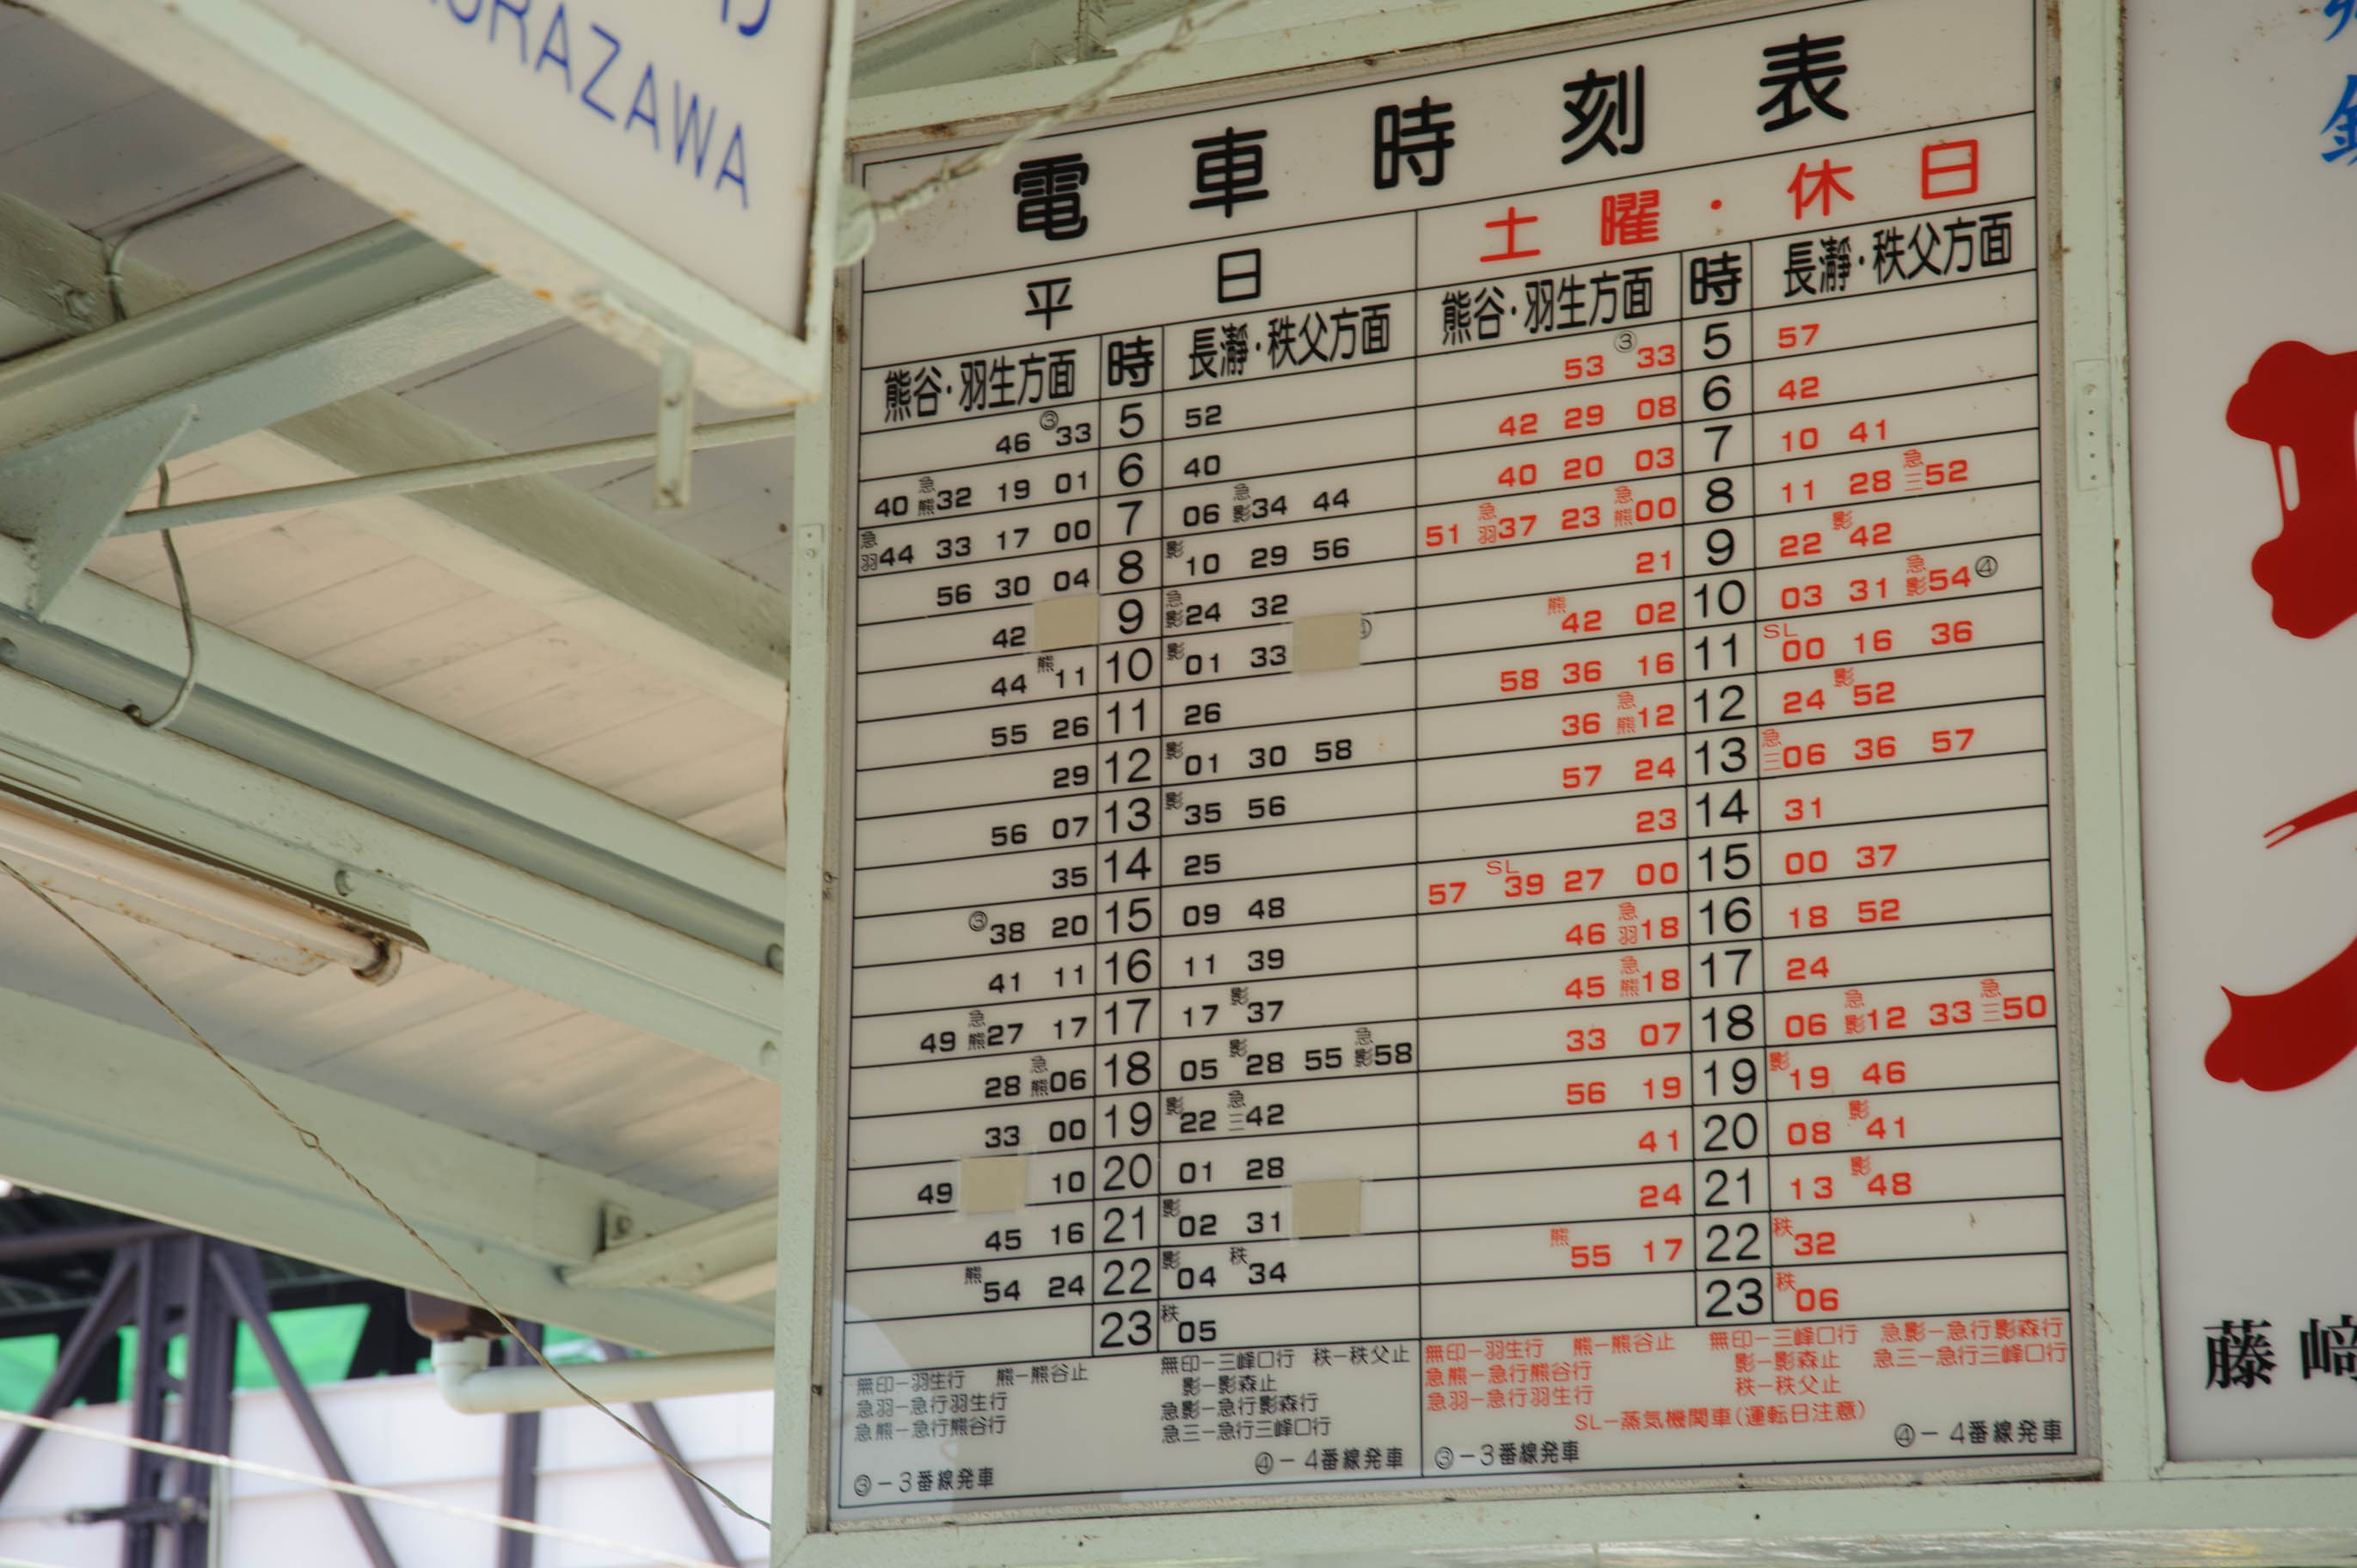 URAZAWA
電車時刻表
平日
土曜・休日
熊谷・羽生方面 時 長瀞・秩父方面
熊谷・羽生方面 時 長瀞・秩父方面
46 ③33 5 52
40 急熊32 19 01 6 40
急羽44 33 17 00 7 06 急影34 44
56 30 04 8 影10 29 56
42 9 急影24 32
44 熊11 10 影01 33 ④
55 26 11 26
29 12 影01 30 58
56 07 13 影35 56
35 14 25
③38 20 15 09 48
41 11 16 11 39
49 急熊27 17 17 17 影37
28 急熊06 18 05 影28 55 急影58
33 00 19 影22 急三42
49 10 20 01 28
45 16 21 影02 31
熊54 24 22 影04 秩34
23 秩05
無印−羽生行 熊−熊谷止
急羽−急行羽生行
急熊−急行熊谷行
③−3番線発車
無印−三峰口行 秩−秩父止
影−影森止
急影−急行影森行
急三−急行三峰口行
④−4番線発車
53 ③33 5 57
42 29 08 6 42
40 20 03 7 10 41
51 急羽37 23 急熊00 8 11 28 急三52
21 9 22 影42
熊42 02 10 03 31 急影54④
58 36 16 11 SL00 16 36
36 急熊12 12 24 影52
57 24 13 急三06 36 57
23 14 31
57 SL39 27 00 15 00 37
46 急羽18 16 18 52
45 急熊18 17 24
33 07 18 06 急影12 33 急三50
56 19 19 影19 46
41 20 08 影41
24 21 13 影48
熊55 17 22 秩32
23 秩06
無印−羽生行 熊−熊谷止
急熊−急行熊谷行
急羽−急行羽生行
無印−三峰口行 急影−急行影森行
影−影森止 急三−急行三峰口行
秩−秩父止
SL−蒸気機関車(運転日注意)
③−3番線発車
④−4番線発車
藤﨑